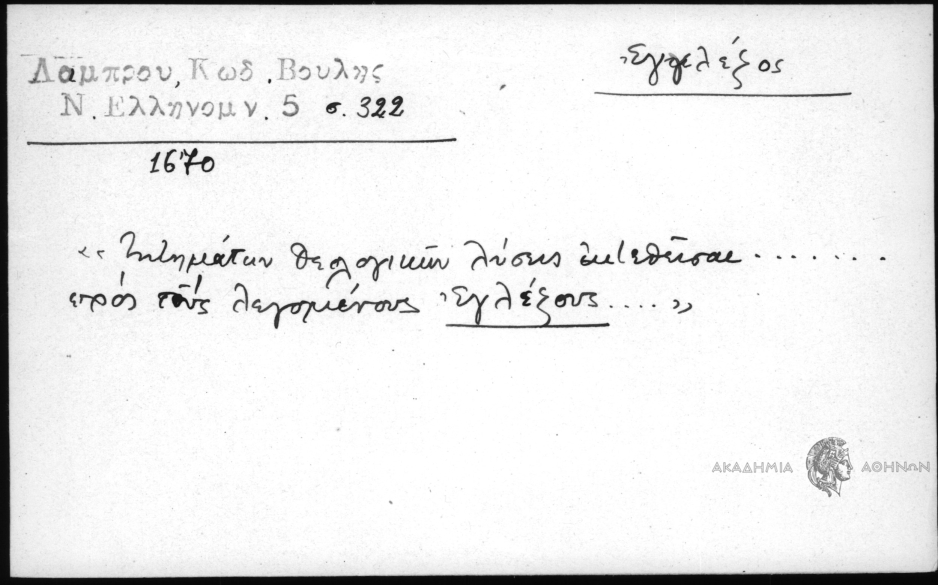 Λάμπρου, Κωδ. Βουλης
Ν. Ελληνομν. 5 σ. 322
Ἐγγελέξος
1670
«Ζητημάτων θεολογικῶν λύσεις ἐκτεθεῖσαι .......
πρός τούς λεγομένους Ἐγλέξους ....»
ΑΚΑΔΗΜΙΑ ΑΘΗΝΩΝ